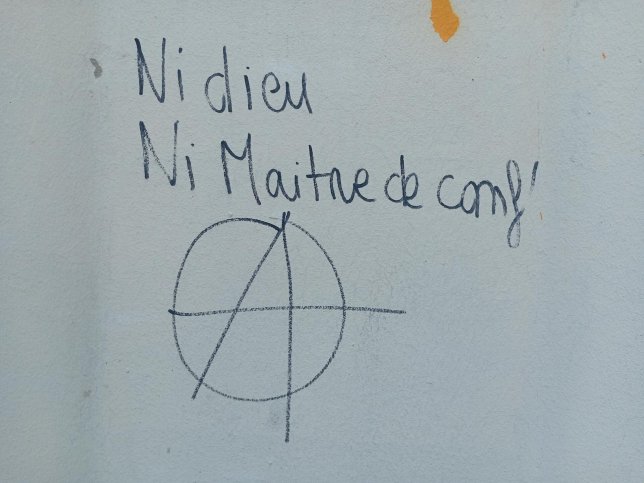 Ni dieu
Ni Maitre de conf'